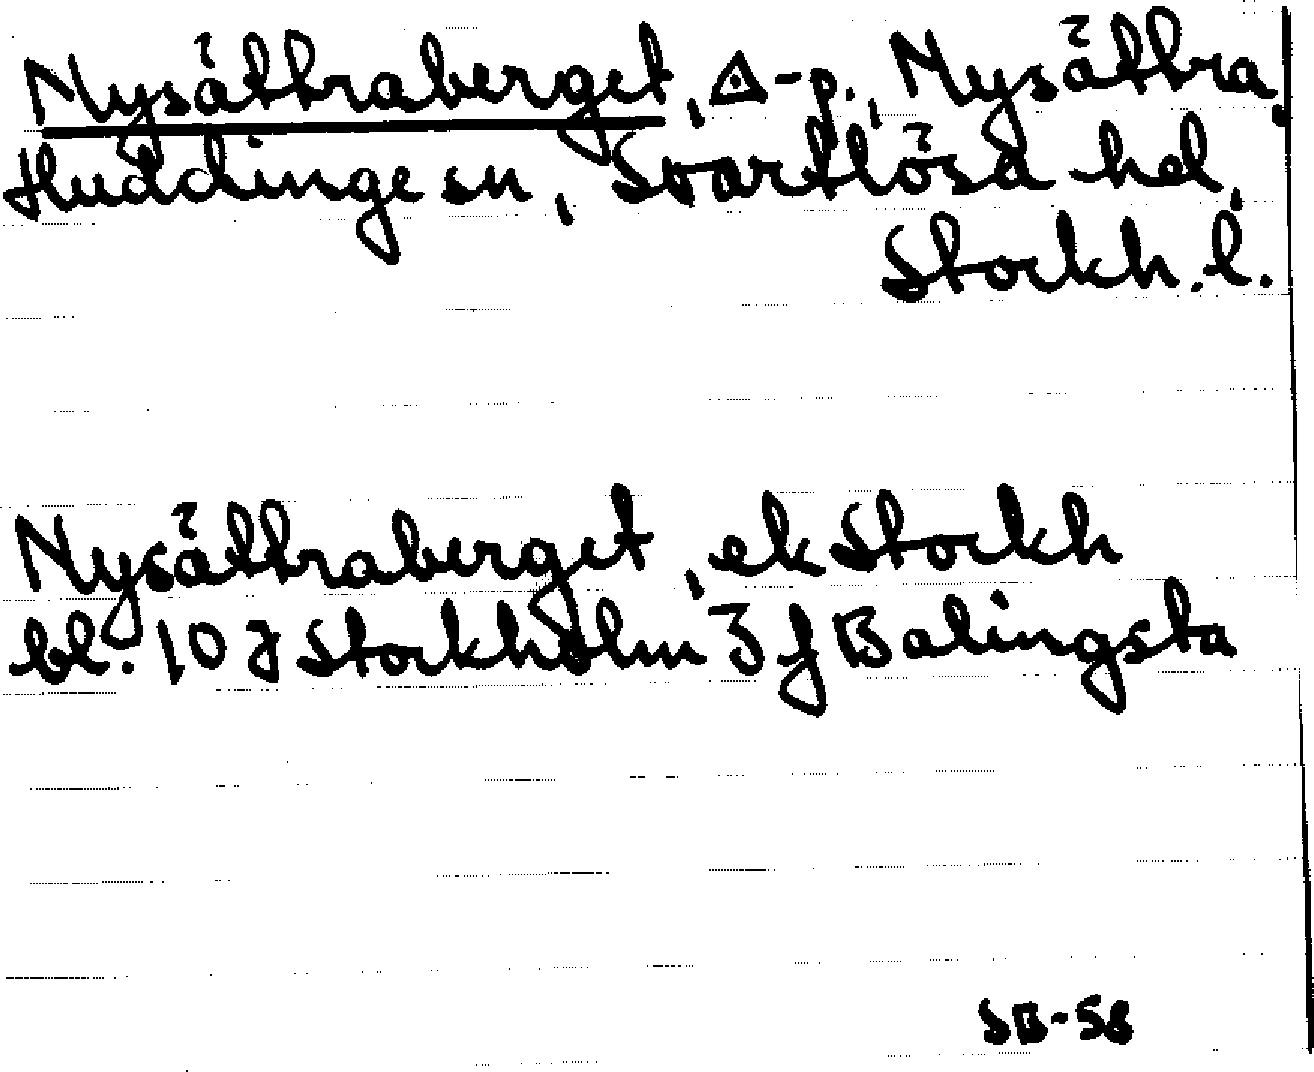 Nysättraberget, ◬-p., Nysättra,
Huddinge sn, Svartlösa hd,
Stockh. l.
Nysättraberget, ek Stockh
bl. 10 J Stockholm 3 f Balingsta
SB-58